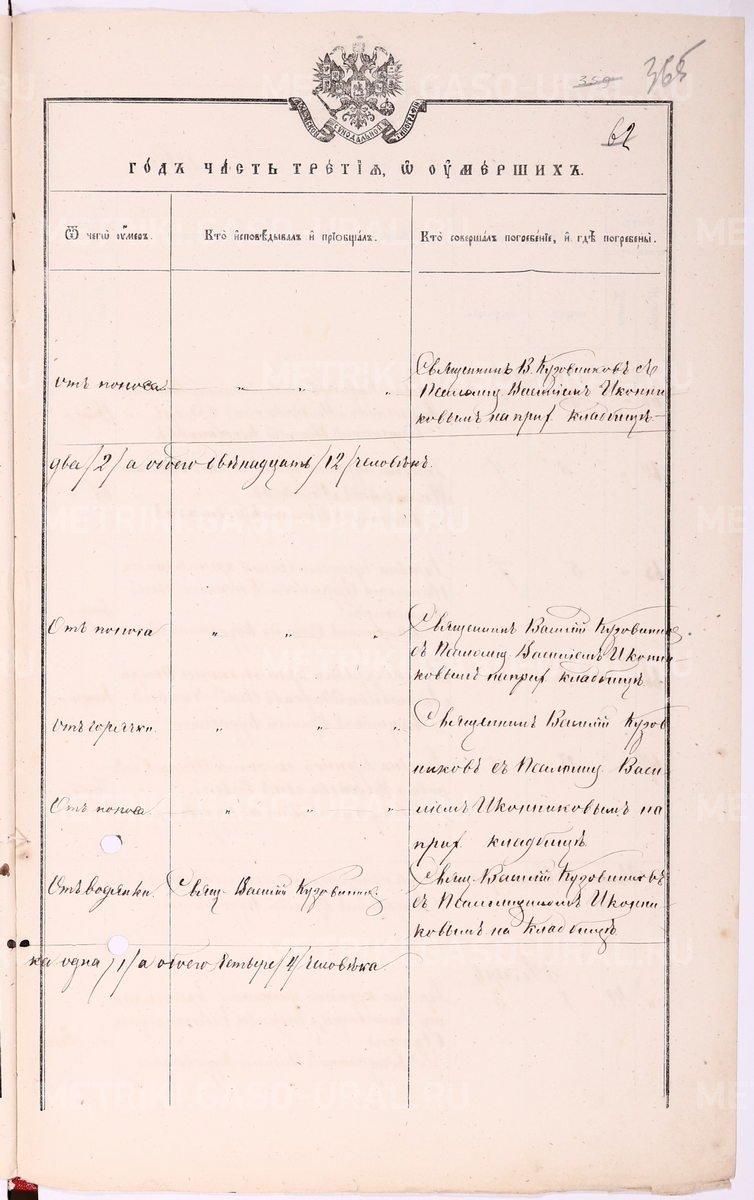 359 365
МОСКОВСКОЙ СѴНОДАЛЬНОЙ ТИПОГРАФІИ
62
ГОДЪ ЧАСТЬ ТРЕТІЯ, Ѿ ОУМЕРШИХЪ.
Ѿ чегѡ оумеръ. Кто исповѣдывалъ и прїобщалъ. Кто совершалъ погребенїе, и гдѣ погребены.
Священникъ В. Кузовниковъ съ
отъ поноса " " " Псаломщ. Василіемъ Иконни-
ковымъ на приx. кладбищѣ
два /2/ а обоего двѣнадцать /12/ человѣкъ.
Отъ поноса " " " Священникъ Василій Кузовников
съ Псаломщ. Василіемъ Иконни-
ковымъ на прих. кладбищѣ
Отъ горячки. " " " Священникъ Василій Кузов
никовъ съ Псаломщ. Васи-
Отъ поноса " " " ліемъ Иконниковымъ на
прих. кладбищѣ
Отъ водянки. Свящ. Василій Кузовников Свящ. Василій Кузовниковъ
съ Псаломщикомъ Иконни-
ковымъ на кладбищѣ
ка одна /1/ а обоего четыре /4/ человѣка.
METRIKI.GASO-URAL.RU